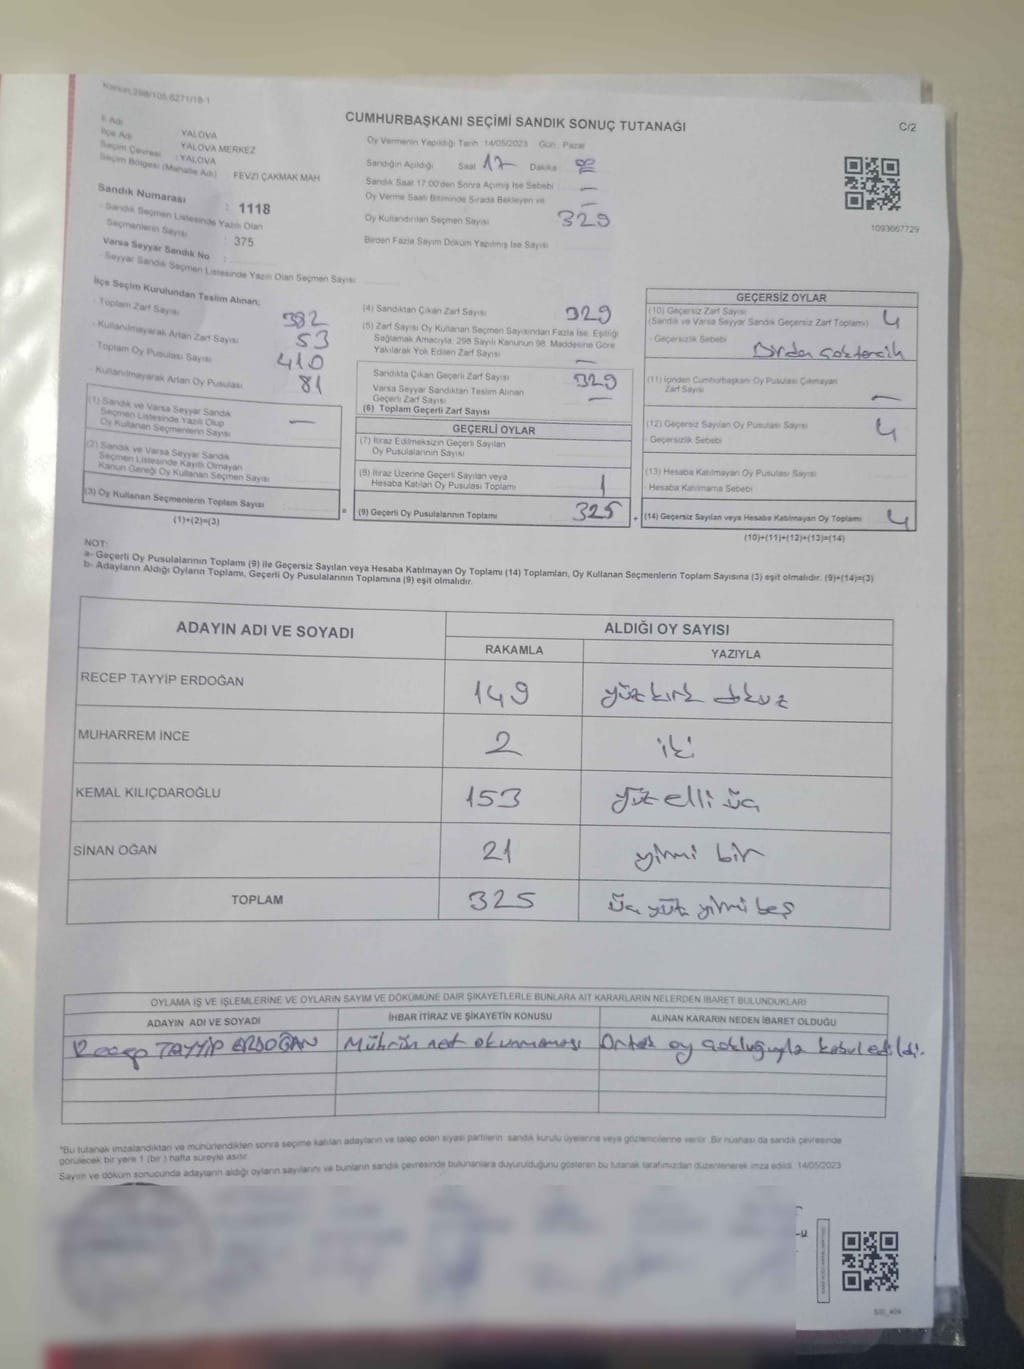 Kanun 298/105,6271/18-1
CUMHURBAŞKANI SEÇİMİ SANDIK SONUÇ TUTANAĞI
C/2
İl Adı YALOVA
İlçe Adı YALOVA MERKEZ
Seçim Çevresi : YALOVA
Seçim Bölgesi (Mahalle Adı) : FEVZİ ÇAKMAK MAH
Sandık Numarası : 1118
- Sandık Seçmen Listesinde Yazılı Olan
Seçmenlerin Sayısı : 375
Varsa Seyyar Sandık No :
- Seyyar Sandık Seçmen Listesinde Yazılı Olan Seçmen Sayısı
Oy Vermenin Yapıldığı Tarih 14/05/2023 Gün : Pazar
Sandığın Açıldığı Saat 17 Dakika
Sandık Saat 17:00'den Sonra Açımış İse Sebebi —
Oy Verme Saati Bitiminde Sırada Bekleyen ve —
Oy Kullandırılan Seçmen Sayısı 329
Birden Fazla Sayım Döküm Yapılmış İse Sayısı
1093667729
İlçe Seçim Kurulundan Teslim Alınan;
- Toplam Zarf Sayısı 382
- Kullanılmayarak Artan Zarf Sayısı 53
- Toplam Oy Pusulası Sayısı 410
- Kullanılmayarak Artan Oy Pusulası 81
(1) Sandık ve Varsa Seyyar Sandık
Seçmen Listesinde Yazılı Olup
Oy Kullanan Seçmenlerin Sayısı —
(2) Sandık ve Varsa Seyyar Sandık
Seçmen Listesinde Kayıtlı Olmayan
Kanun Gereği Oy Kullanan Seçmen Sayısı
(3) Oy Kullanan Seçmenlerin Toplam Sayısı
(1)+(2)=(3)
=
(4) Sandıktan Çıkan Zarf Sayısı 329
(5) Zarf Sayısı Oy Kullanan Seçmen Sayısından Fazla İse, Eşitliği
Sağlamak Amacıyla, 298 Sayılı Kanunun 98. Maddesine Göre
Yakılarak Yok Edilen Zarf Sayısı —
Sandıkta Çıkan Geçerli Zarf Sayısı 329
Varsa Seyyar Sandıktan Teslim Alınan
Geçerli Zarf Sayısı —
(6) Toplam Geçerli Zarf Sayısı
GEÇERLİ OYLAR
(7) İtiraz Edilmeksizin Geçerli Sayılan
Oy Pusulalarının Sayısı
(8) İtiraz Üzerine Geçerli Sayılan veya
Hesaba Katılan Oy Pusulası Toplamı 1
(9) Geçerli Oy Pusulalarının Toplamı 325
+
GEÇERSİZ OYLAR
(10) Geçersiz Zarf Sayısı
(Sandık ve Varsa Seyyar Sandık Geçersiz Zarf Toplamı) 4
- Geçersizlik Sebebi Birden çok tercih
(11) İçinden Cumhurbaşkanı Oy Pusulası Çıkmayan
Zarf Sayısı —
(12) Geçersiz Sayılan Oy Pusulası Sayısı 4
- Geçersizlik Sebebi
(13) Hesaba Katılmayan Oy Pusulası Sayısı
- Hesaba Katılmama Sebebi
(14) Geçersiz Sayılan veya Hesaba Katılmayan Oy Toplamı 4
(10)+(11)+(12)+(13)=(14)
NOT:
a- Geçerli Oy Pusulalarının Toplamı (9) ile Geçersiz Sayılan veya Hesaba Katılmayan Oy Toplamı (14) Toplamları, Oy Kullanan Seçmenlerin Toplam Sayısına (3) eşit olmalıdır. (9)+(14)=(3)
b- Adayların Aldığı Oyların Toplamı, Geçerli Oy Pusulalarının Toplamına (9) eşit olmalıdır.
ADAYIN ADI VE SOYADI
ALDIĞI OY SAYISI
RAKAMLA YAZIYLA
RECEP TAYYİP ERDOĞAN 149 yüz kırk dokuz
MUHARREM İNCE 2 iki
KEMAL KILIÇDAROĞLU 153 yüz elli üç
SİNAN OĞAN 21 yirmi bir
TOPLAM 325 üç yüz yirmi beş
OYLAMA İŞ VE İŞLEMLERİNE VE OYLARIN SAYIM VE DÖKÜMÜNE DAİR ŞİKAYETLERLE BUNLARA AİT KARARLARIN NELERDEN İBARET BULUNDUKLARI
ADAYIN ADI VE SOYADI İHBAR İTİRAZ VE ŞİKAYETİN KONUSU ALINAN KARARIN NEDEN İBARET OLDUĞU
Recep TAYYİP ERDOĞAN Mührün net okunmaması Ortak oy çokluğuyla kabul edildi.
"Bu tutanak imzalandıktan ve mühürlendikten sonra seçime katılan adayların ve talep eden siyasi partilerin sandık kurulu üyelerine veya gözlemcilerine verilir. Bir nüshası da sandık çevresinde
görülecek bir yere 1 (bir ) hafta süreyle asılır.
Sayım ve döküm sonucunda adayların aldığı oyların sayılarını ve bunların sandık çevresinde bulunanlara duyurulduğunu gösteren bu tutanak tarafımızdan düzenlenerek imza edildi. 14/05/2023